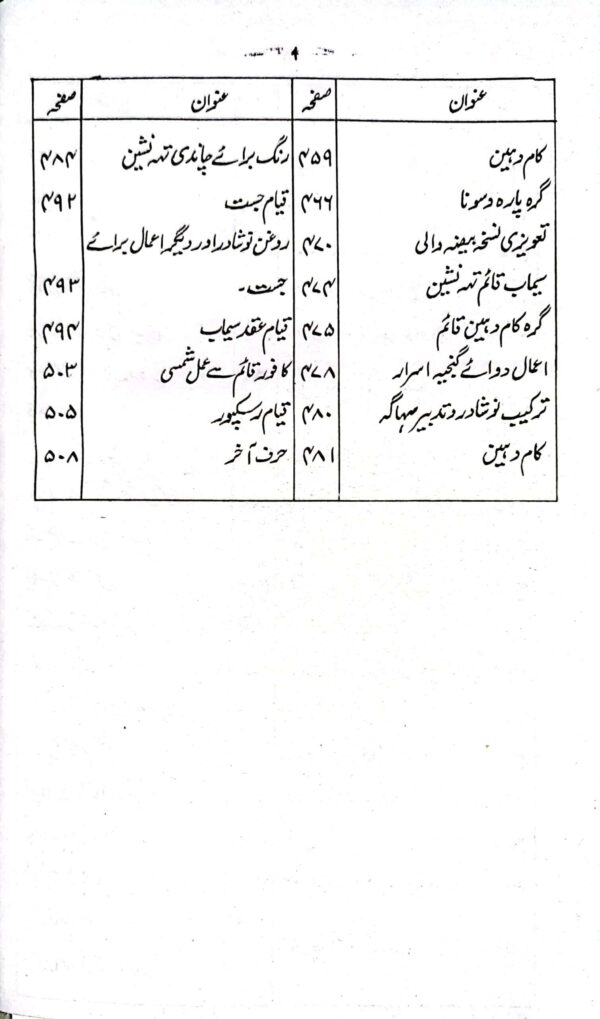 ۹
عنوان صفحہ عنوان صفحہ
کام دہین ۴۵۹ رنگ برائے چاندی تہہ نشین ۴۸۴
گرہ پارہ و سونا ۴۶۶ قیام جست ۴۹۲
تعویزی نسخہ بیضہ والی ۴۷۰ روغن نوشادر اور دیگر اعمال برائے
سیماب قائم تہہ نشین ۴۷۴ جست۔ ۴۹۳
گرہ کام دہین قائم ۴۷۵ قیام عقد سیماب ۴۹۴
اعمال دوائے گنجیہ اسرار ۴۷۸ کافور قائم سے عمل شمسی ۵۰۳
ترکیب نوشادر و تدبیر سہاگہ ۴۸۰ قیام رسکپور ۵۰۵
کام دہین ۴۸۱ حرف آخر ۵۰۸